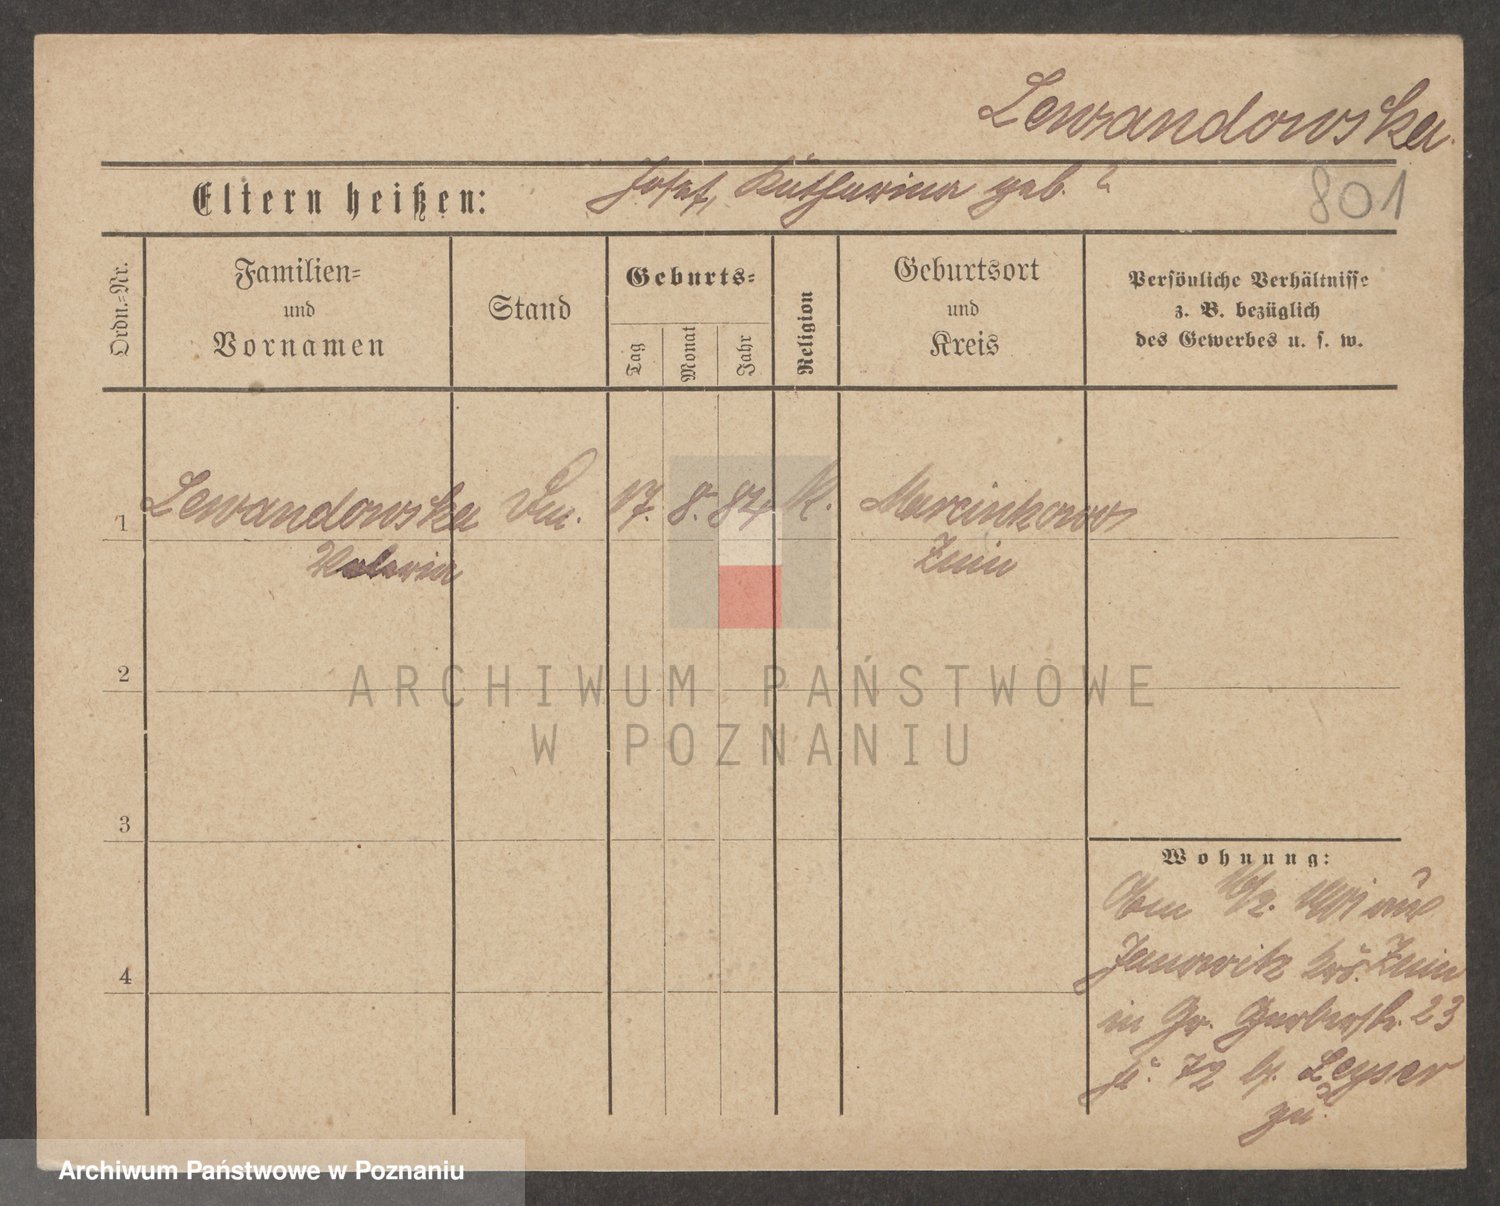 Lewandowska
Eltern heißen: Josef, Katharina geb. ?
801
Ordn.-Nr.
Familien-
und
Vornamen
Stand
Geburts-
Tag
Monat
Jahr
Religion
Geburtsort
und
Kreis
Persönliche Verhältnisse
z. B. bezüglich
des Gewerbes u. s. w.
1 Lewandowska 17. 8. 84 K. Marcinkowo
Valeria Znin
2
3
4
Wohnung:
Am 16/2. aus
Janowitz Krs. Znin
in Gr. Gerberstr. 23
72 b. Leyser
zu.
ARCHIWUM PAŃSTWOWE
W POZNANIU
Archiwum Państwowe w Poznaniu